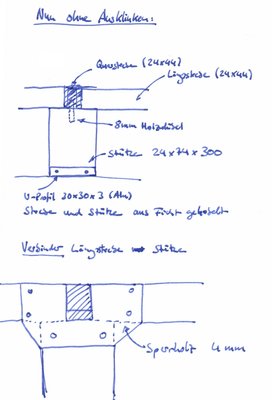 Nun ohne Ausklinken:
Querstrebe (24x44)
Längsstrebe (24x44)
8mm Holzdübel
Stütze 24x74x300
U-Profil 30x30x3 (Alu)
Strebe und Stütze aus Fichte gehobelt
Verbinder Längsstrebe Stütze
Sperrholz 4mm